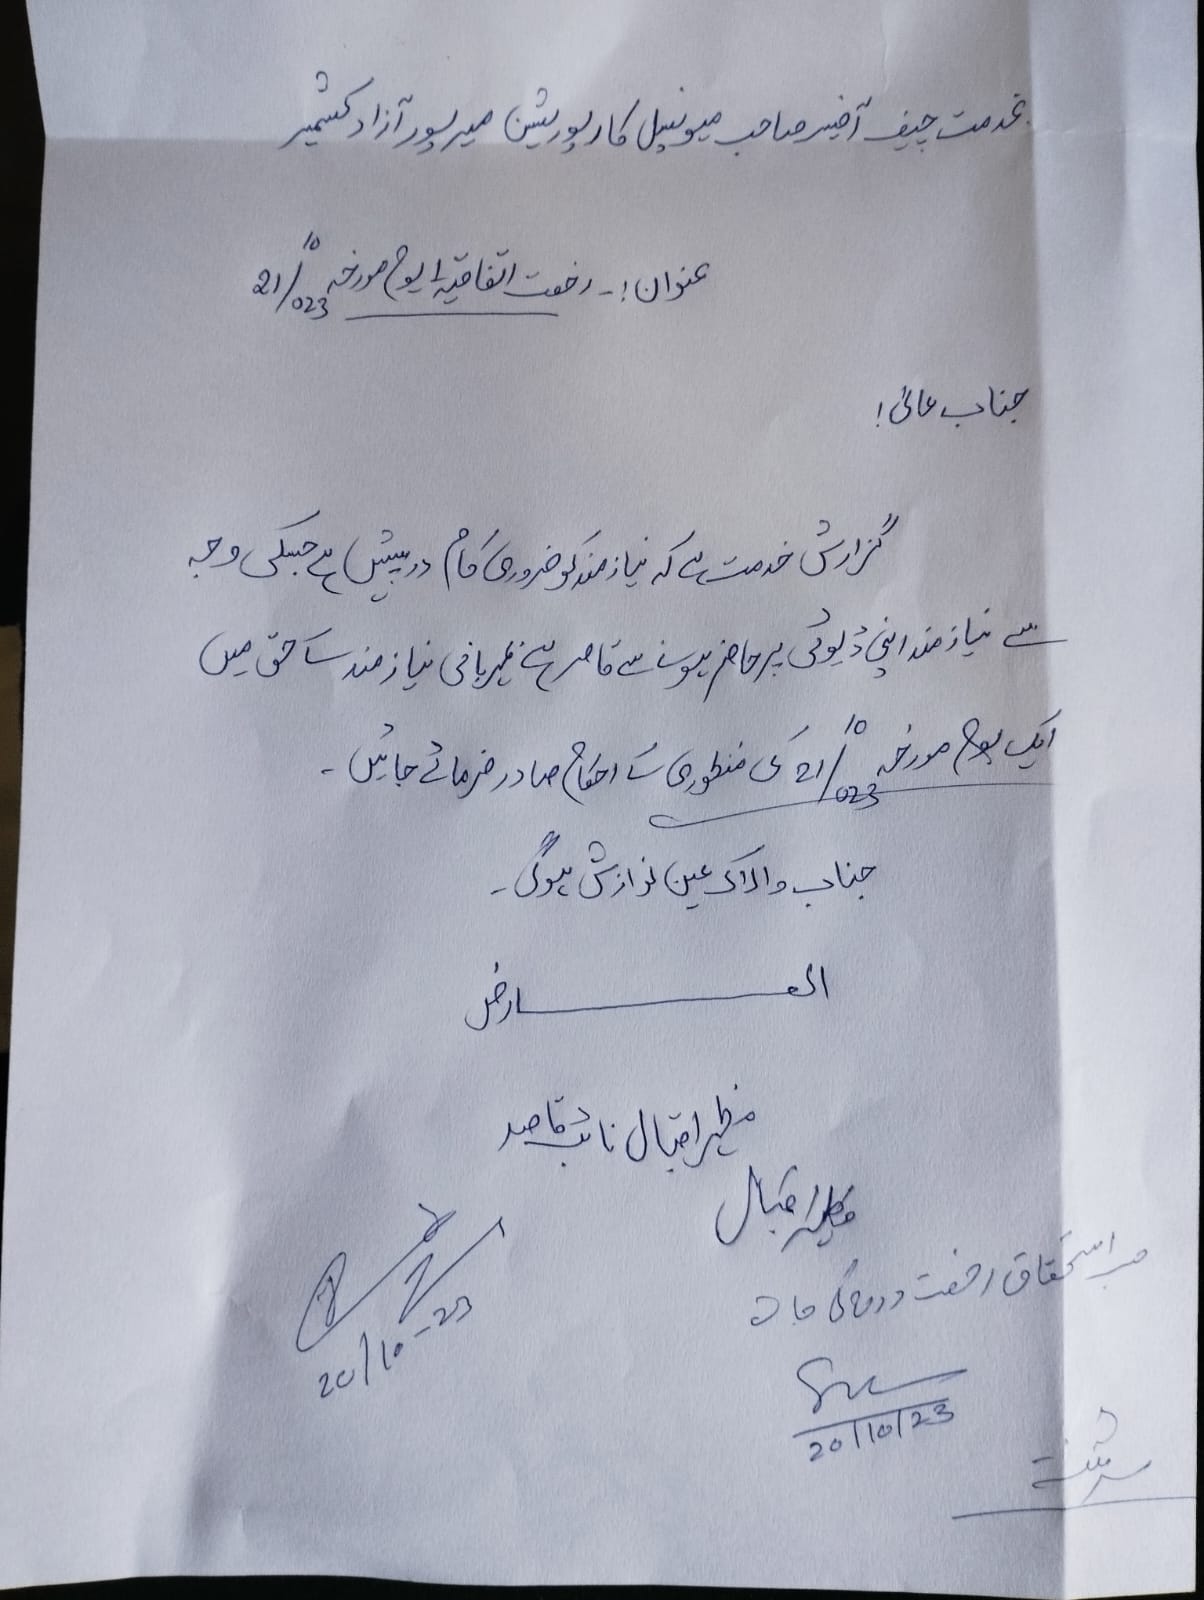 بخدمت چیف آفیسر صاحب میونسپل کارپوریشن میرپور آزاد کشمیر
عنوان :۔ رخصت اتفاقیہ 1 یوم مورخہ 21/10/023
جناب عالی!
گزارش خدمت ہے کہ نیازمند کو ضروری کام درپیش ہے جسکی وجہ
سے نیازمند اپنی ڈیوٹی پر حاضر ہونے سے قاصر ہے بمہربانی نیازمند کے حق میں
ایک یوم مورخہ 21/10/023 کی منظوری کے احکام صادر فرمائے جائیں۔
جناب والا کی عین نوازش ہوگی۔
العارض
مظہر اقبال نائب قاصد
مظہر اقبال
حسب استحقاق رخصت درج کی جائے
20/10-23
20/10/23